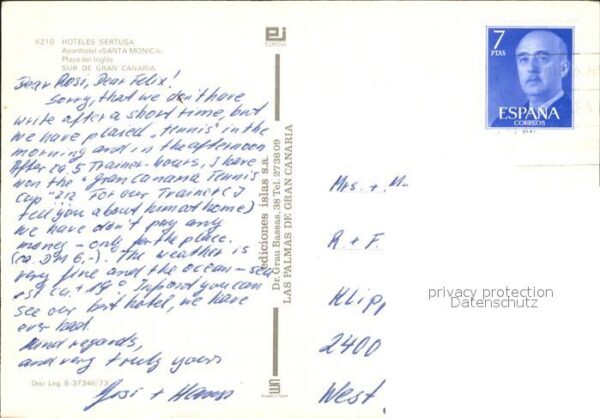 6210 HOTELES SERTUSA
Aparthotel «SANTA MONICA»
Playa del Inglés
SUR DE GRAN CANARIA
Dear Rosi, Dear Felix!
Sorry, that we don't have
write after a short time, but
we have played "tennis" in the
morning and in the afternoon
After ca. 5 Trainer-hours, I have
won the "gran Canaria Tennis
Cup" For our Trainer (I
tell you about him at home)
we have don't pay any
money - only for the place.
(ca. DM 6,-). The weather is
very fine and the ocean-sea
ist ca. + 19° you can
see our hotel, we have
ever had.
Kind regards,
and very truly yours
Josi + Hans
Dep. Leg. B-37346/73
EDIRSA
ediciones islas s.a.
Dr. Grau Bassas, 38 Tel. 273609
LAS PALMAS DE GRAN CANARIA
7
PTAS
ESPAÑA
CORREOS
Mrs. + M
R. + F.
Klipp
2400
West
privacy protection
Datenschutz